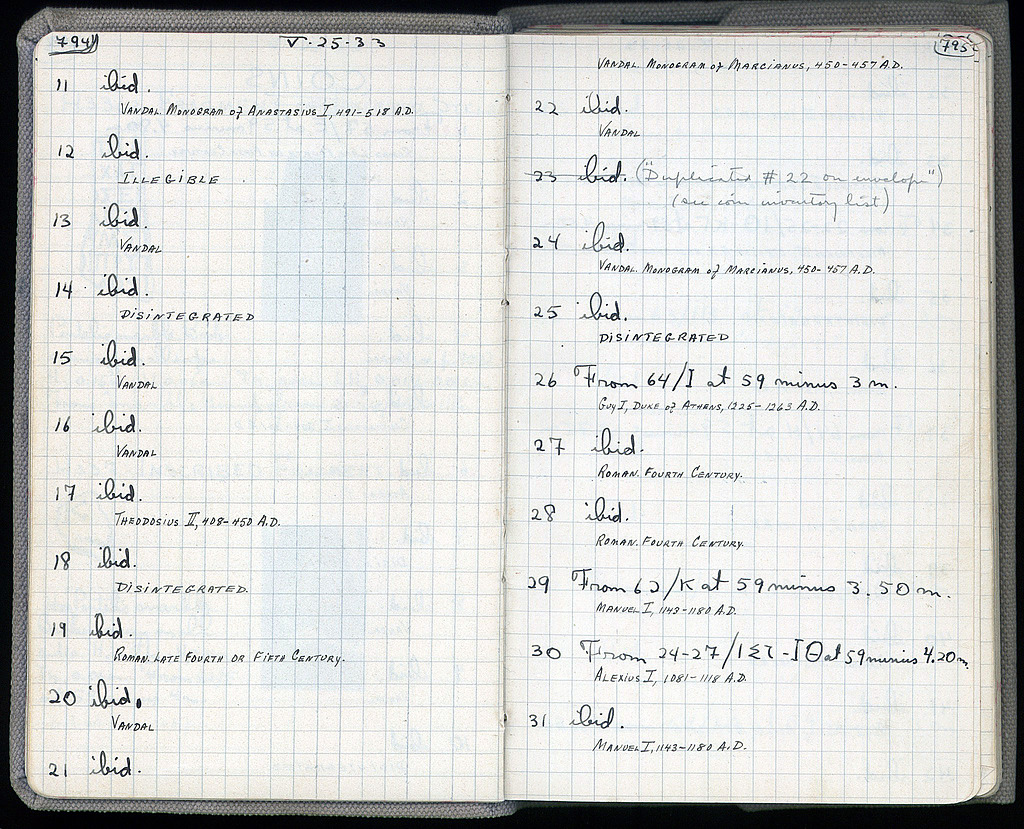 794
V·25·33
11 ibid.
VANDAL. MONOGRAM of ANASTASIUS I, 491-518 A.D.
12 ibid.
ILLEGIBLE
13 ibid.
VANDAL
14 ibid.
DISINTEGRATED
15 ibid.
VANDAL
16 ibid.
VANDAL
17 ibid.
THEODOSIUS II, 408-450 A.D.
18 ibid.
DISINTEGRATED.
19 ibid.
ROMAN. LATE FOURTH OR FIFTH CENTURY.
20 ibid.
VANDAL
21 ibid.
795
VANDAL. MONOGRAM of MARCIANUS, 450-457 A.D.
22 ibid.
VANDAL
23 ibid. ("Duplicated # 22 on envelope")
(see coin inventory list)
24 ibid.
VANDAL. MONOGRAM of MARCIANUS, 450-457 A.D.
25 ibid.
DISINTEGRATED
26 From 64/I at 59 minus 3 m.
GUY I, DUKE of ATHENS, 1225-1263 A.D.
27 ibid.
ROMAN. FOURTH CENTURY.
28 ibid.
ROMAN. FOURTH CENTURY.
29 From 62/K at 59 minus 3.50 m.
MANUEL I, 1143-1180 A.D.
30 From 24-27/ at 59 minus 4.20 m.
ALEXIUS I, 1081-1118 A.D.
31 ibid.
MANUEL I, 1143-1180 A.D.